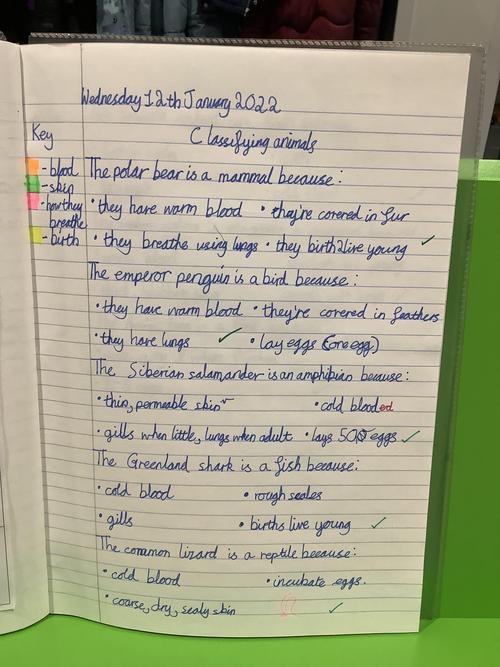 Wednesday 12th January 2022
Key
Classifying animals
- blood
- skin
- how they
breathe
- birth
The polar bear is a mammal because:
• they have warm blood • they're covered in fur
• they breathe using lungs • they birth live young
The emperor penguin is a bird because:
• they have warm blood • they're covered in feathers
• they have lungs • lay eggs (one egg)
The Siberian salamander is an amphibian because:
• thin, permeable skin • cold blooded
• gills when little, lungs when adult • lays 500 eggs
The Greenland shark is a fish because:
• cold blood • rough scales
• gills • births live young
The common lizard is a reptile because:
• cold blood • incubate eggs.
• coarse, dry, scaly skin